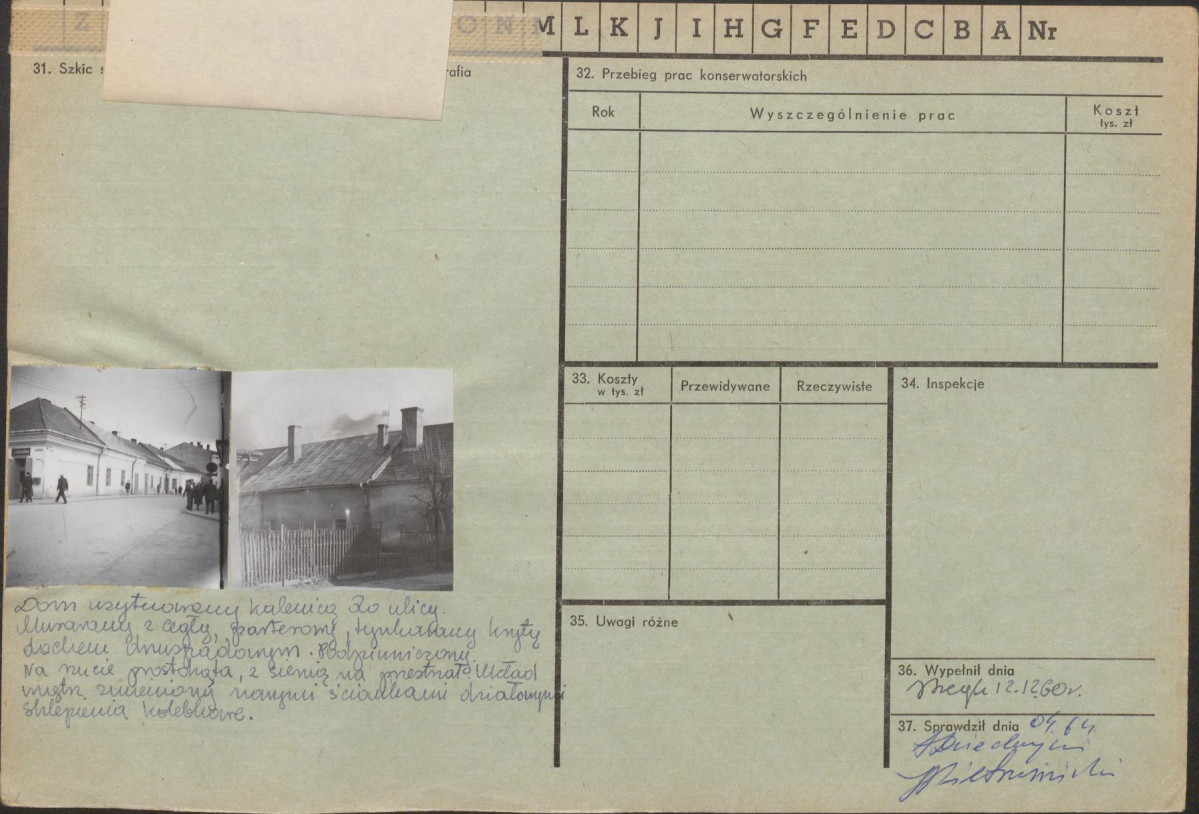 Z O N M L K J I H G F E D C B A Nr
31. Szkic
rafia
32. Przebieg prac konserwatorskich
Rok Wyszczególnienie prac Koszt
tys. zł
33. Koszty
w tys. zł
Przewidywane Rzeczywiste
34. Inspekcje
Dom usytuowany kalenicą do ulicy.
Murowany z cegły, parterowy, tynkowany kryty
dachem dwuspadowym. Podpiwniczony.
Na rzucie prostokąta, z sienią na przestrzał. Układ
wnętrz zmieniony nowymi ściankami działowymi
sklepienia kolebkowe.
35. Uwagi różne
36. Wypełnił dnia
12.1260r.
37. Sprawdził dnia 04.64.